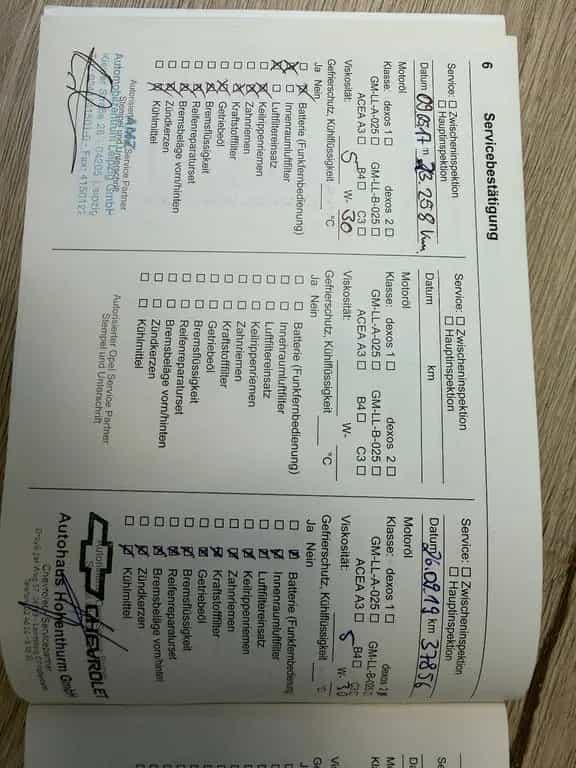 6
Servicebestätigung
Service: □ Zwischeninspektion
□ Hauptinspektion
Datum 09.03.17 km 26.258 km
Motoröl
Klasse: dexos 1 □ dexos 2 □
GM-LL-A-025 □ GM-LL-B-025 □
ACEA A3 □ B4 □ C3 □
Viskosität: 5 W- 30
Gefrierschutz, Kühlflüssigkeit °C
Ja Nein
Batterie (Funkfernbedienung)
Innenraumluftfilter
Luftfiltereinsatz
Keilrippenriemen
Zahnriemen
Kraftstofffilter
Getriebeöl
Bremsflüssigkeit
Reifenreparaturset
Bremsbeläge vorn/hinten
Zündkerzen
Kühlmittel
Autorisierter Opel Service Partner
Stempel und Unterschrift
AMZ
Automobilzentrum Leipzig GmbH
04205 Leipzig
Service: □ Zwischeninspektion
□ Hauptinspektion
Datum km
Motoröl
Klasse: dexos 1 □ dexos 2 □
GM-LL-A-025 □ GM-LL-B-025 □
ACEA A3 □ B4 □ C3 □
Viskosität: W-
Gefrierschutz, Kühlflüssigkeit °C
Ja Nein
□ □ Batterie (Funkfernbedienung)
□ □ Innenraumluftfilter
□ □ Luftfiltereinsatz
□ □ Keilrippenriemen
□ □ Zahnriemen
□ □ Kraftstofffilter
□ □ Getriebeöl
□ □ Bremsflüssigkeit
□ □ Reifenreparaturset
□ □ Bremsbeläge vorn/hinten
□ □ Zündkerzen
□ □ Kühlmittel
Autorisierter Opel Service Partner
Stempel und Unterschrift
Service: □ Zwischeninspektion
□ Hauptinspektion
Datum 26.09.19 km 37856
Motoröl
Klasse: dexos 1 □ dexos 2
GM-LL-A-025 □ GM-LL-B-025 □
ACEA A3 □ B4 □ C3
Viskosität: 5 W- 30
Gefrierschutz, Kühlflüssigkeit °C
Ja Nein
Batterie (Funkfernbedienung)
Innenraumluftfilter
Luftfiltereinsatz
Keilrippenriemen
Zahnriemen
Kraftstofffilter
Getriebeöl
Bremsflüssigkeit
Reifenreparaturset
Bremsbeläge vorn/hinten
Zündkerzen
Kühlmittel
CHEVROLET
Autohaus Hohenthurm GmbH
Chevrolet Servicepartner